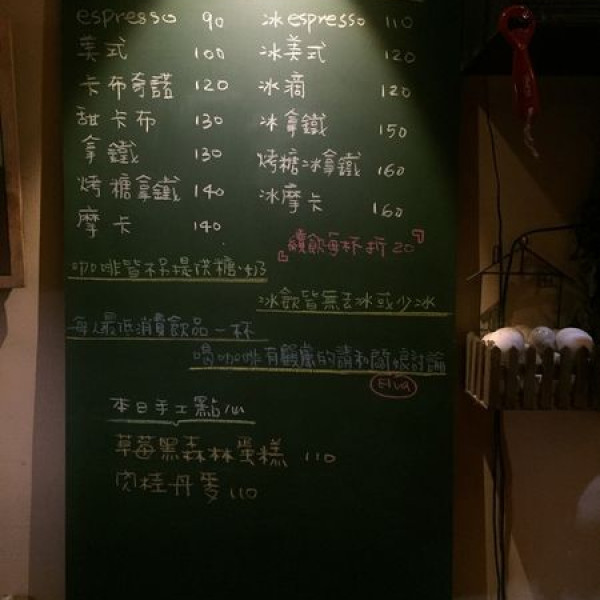 espresso 90
美式 100
卡布奇諾 120
甜卡布 130
拿鐵 130
烤糖拿鐵 140
摩卡 140
冰espresso 110
冰美式 120
冰滴 120
冰拿鐵 150
烤糖冰拿鐵 160
冰摩卡 160
『續飲每杯折20』
咖啡皆不提供糖、奶
冰飲皆無去冰或少冰
每人最低消費飲品一杯
喝咖啡有疑慮的請和闆娘討論
Elva
本日手工點心
草莓黑森林蛋糕 110
肉桂丹麥 110